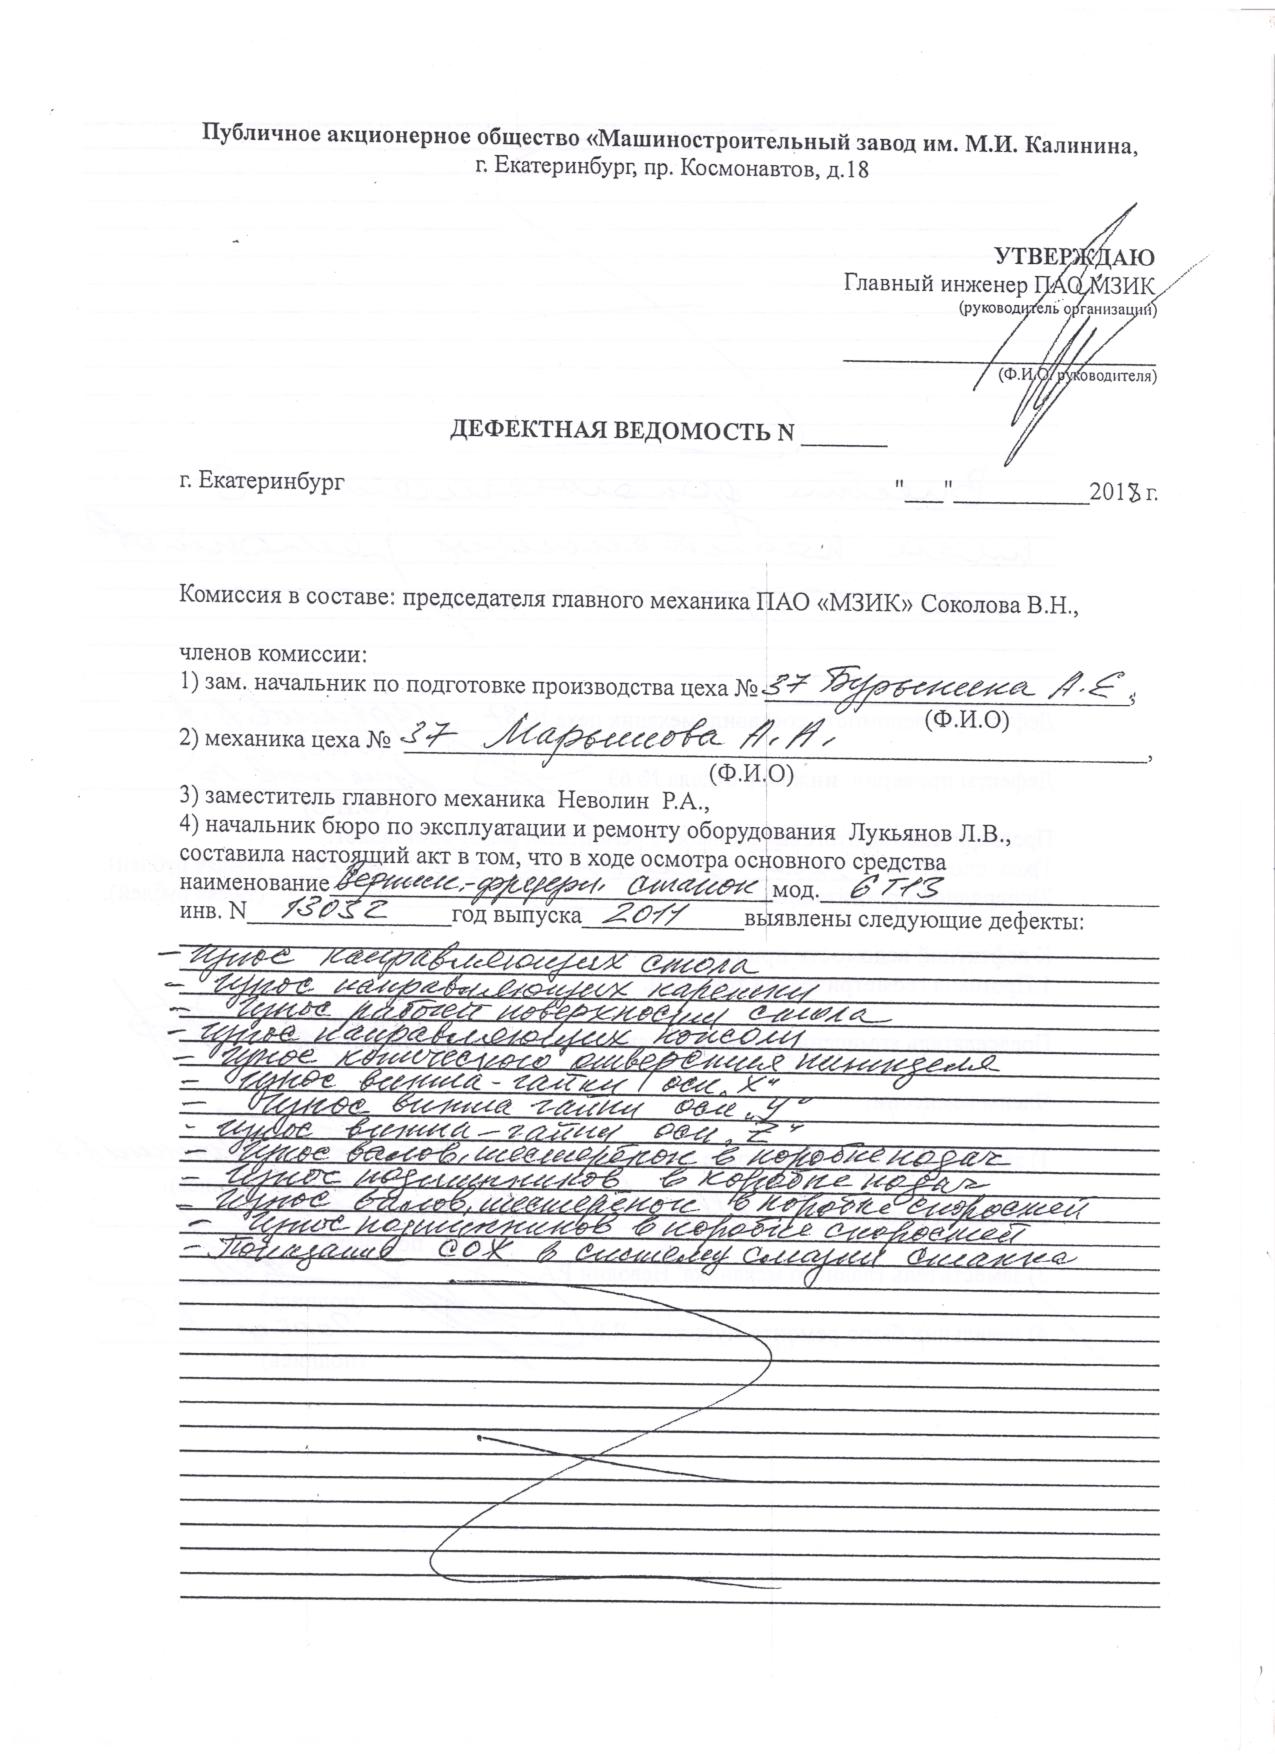 Публичное акционерное общество «Машиностроительный завод им. М.И. Калинина,
г. Екатеринбург, пр. Космонавтов, д.18
УТВЕРЖДАЮ
Главный инженер ПАО МЗИК
(руководитель организаций)
(Ф.И.О. руководителя)
ДЕФЕКТНАЯ ВЕДОМОСТЬ N ______
г. Екатеринбург "___"___________2018 г.
Комиссия в составе: председателя главного механика ПАО «МЗИК» Соколова В.Н.,
членов комиссии:
1) зам. начальник по подготовке производства цеха № 37 Бурынина А.Е.,
(Ф.И.О)
2) механика цеха № 37 Марышова А.А.,
(Ф.И.О)
3) заместитель главного механика Неволин Р.А.,
4) начальник бюро по эксплуатации и ремонту оборудования Лукьянов Л.В.,
составила настоящий акт в том, что в ходе осмотра основного средства
наименование Вертик.-фрезерн. станок мод. 6Т13
инв. N 13032 год выпуска 2011 выявлены следующие дефекты:
- Износ направляющих стола
- Износ направляющих каретки
- Износ рабочей поверхности стола
- Износ направляющих консоли
- Износ конического отверстия шпинделя
- Износ винта-гайки оси „X"
- Износ винта гайки оси „Y"
- Износ винта-гайки оси „Z"
- Износ валов, шестерёнок в коробке подач
- Износ подшипников в коробке подач
- Износ валов, шестерёнок в коробке скоростей
- Износ подшипников в коробке скоростей
- Попадание СОЖ в систему смазки станка